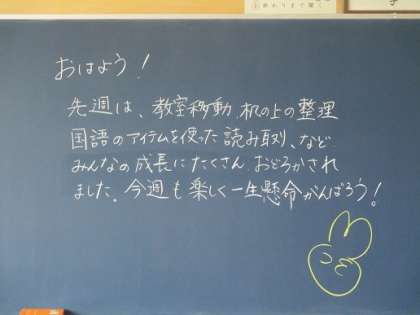 おはよう!
先週は、教室移動、机の上の整理
国語のアイテムを使った読み取り、など
みんなの成長にたくさん、おどろかされ
ました。今週も楽しく一生懸命がんばろう!